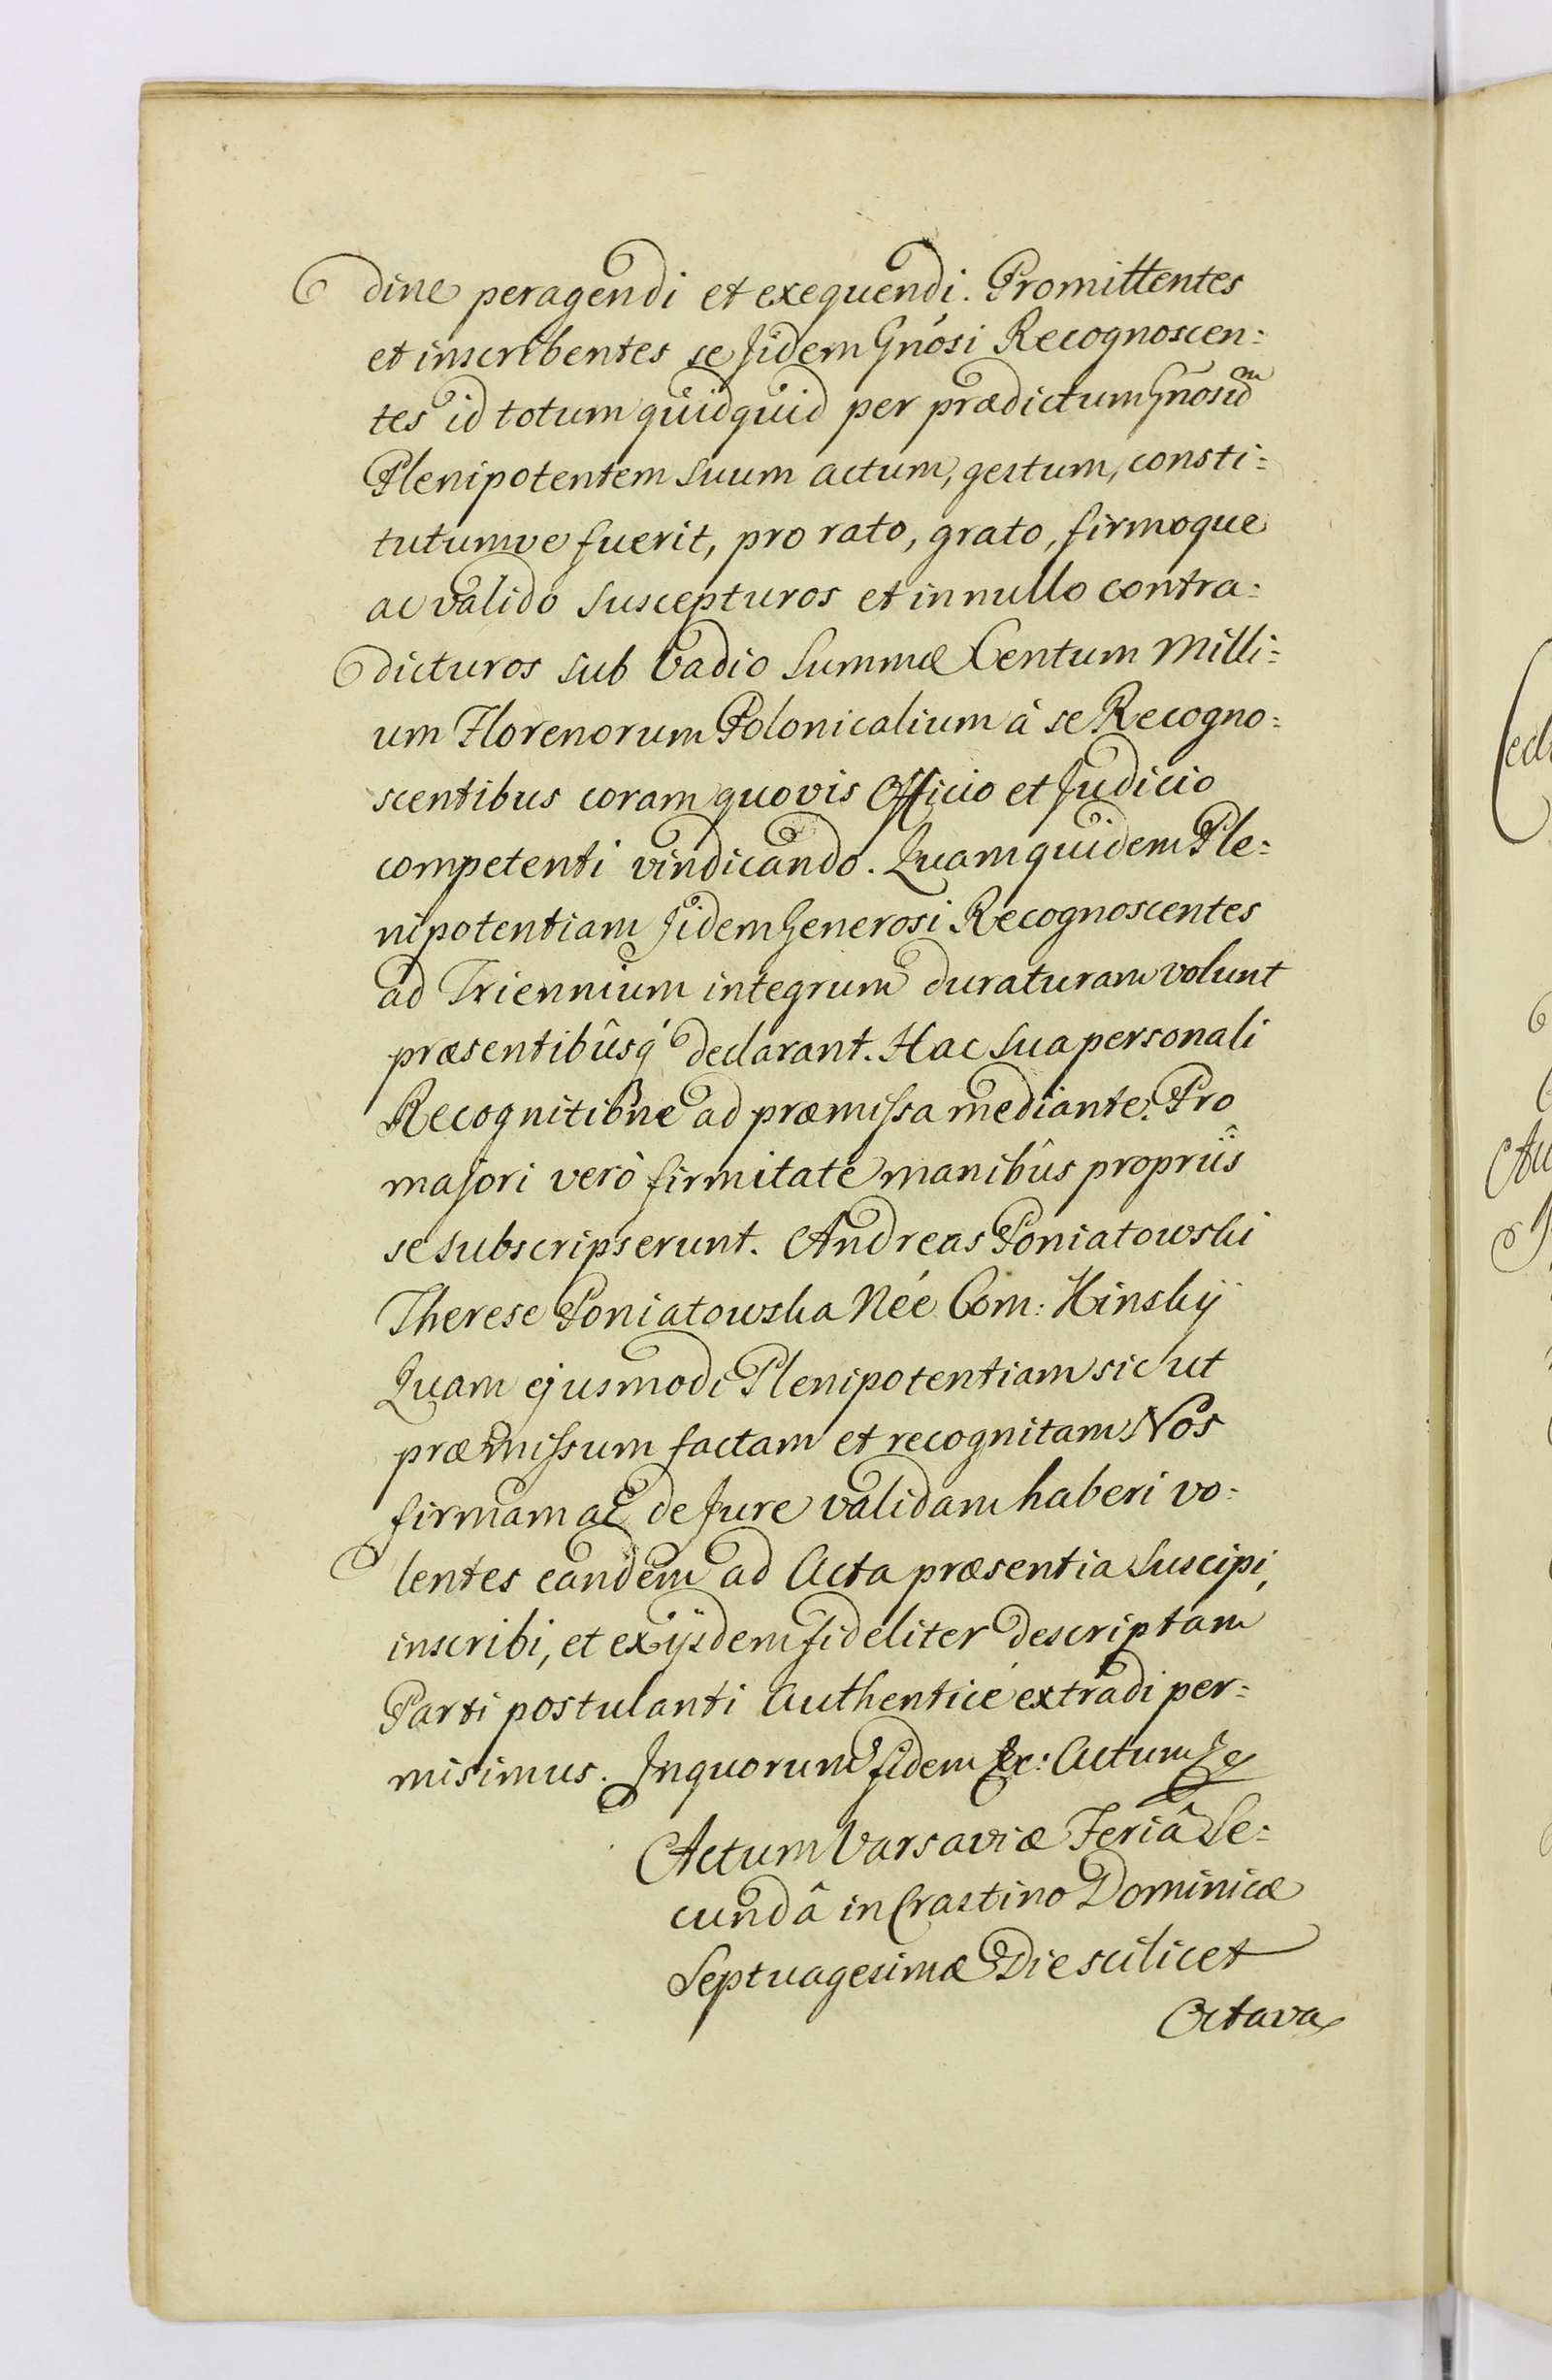 dine peragendi et exequendi. Promittentes
et inscribentes se Jidem Gnôsi Recognoscen:
tes id totum quidquid per prædictum Gnosum
Plenipotentem suum actum, gestum, consti:
tutumve fuerit, pro rato, grato, firmoque
ac valido suscepturos et in nullo contra:
dicturos sub Vadio Summæ Centum Milli:
um Florenorum Polonicalium à se Recogno:
scentibus coram quovis Officio et Judicio
competenti vindicando. Quam quidem Ple:
nipotentiam Jidem Generosi Recognoscentes
ad Triennium integrum duraturam volunt
præsentibûsq' declarant. Hac sua personali
Recognitione ad præmissa mediante. Pro
majori verò firmitate manibûs propriîs
se subscripserunt. Andreas Poniatowski
Therese Poniatowska Née Com: Kinskÿ
Quam ejusmodi Plenipotentiam sic ut
præmissum factam et recognitam Nos
firmam ac de Jure validam haberi vo:
lentes eandem ad Acta præsentia suscipi,
inscribi, et ex ijsdem fideliter descriptam
Parti postulanti Authenticè extradi per:
misimus. In quorum fidem &c: Actum
Actum Varsaviæ Feriâ Se:
cundâ in Crastino Dominicæ
Septuagesimæ Die scilicet
Octava